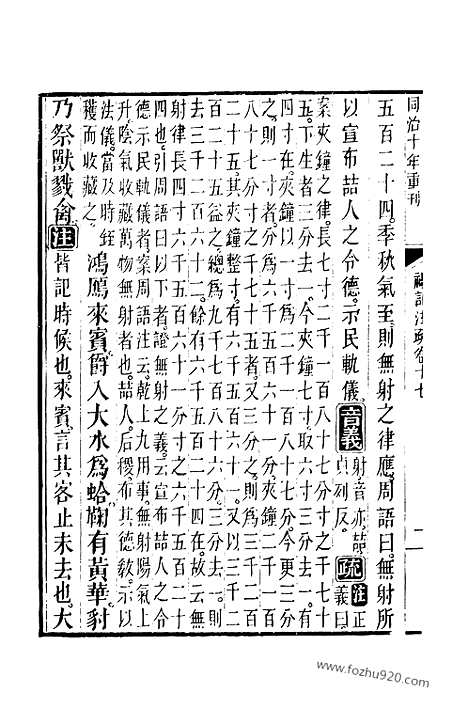 同治十年重刊
禮記注疏卷十七
二
五百二十四季秋氣至則無射之律應周語曰無射所
以宣布喆人之令德示民軌儀音義射音亦喆
貞列反疏注正
義曰
案夾鐘之律長七寸二千一百八十七分寸之千七十
五下生者三分去一今夾鐘七寸取六寸三分去一有
四寸在夾鐘以一寸爲二千一百八十七分今更三分
之則一寸者分爲六千五百六十一夾鐘二千一百
八十七分寸之千七十五者又三分之則爲三千二百
二十五其夾鐘整寸有六千五百六十一又以三千二
百二十五益之總爲九千七百八十六分三分去一則
去三千二百六十二餘有六千五百二十四在故云無
射律長四寸六千五百六十一分寸之六千五百二十
四也引周語曰以下者證無射之義云宣布喆人之令
德示民軌儀者案周語注云乾上九用事無射陽氣上
升陰氣收藏萬物無射者也喆人后稷布其德教示以
法儀當及時銍
穫而收藏之鴻鴈來賓爵入大水爲蛤鞠有黃華豺
乃祭獸戮禽注皆記時候也來賓言其客止未去也大
www.fozhu920.com